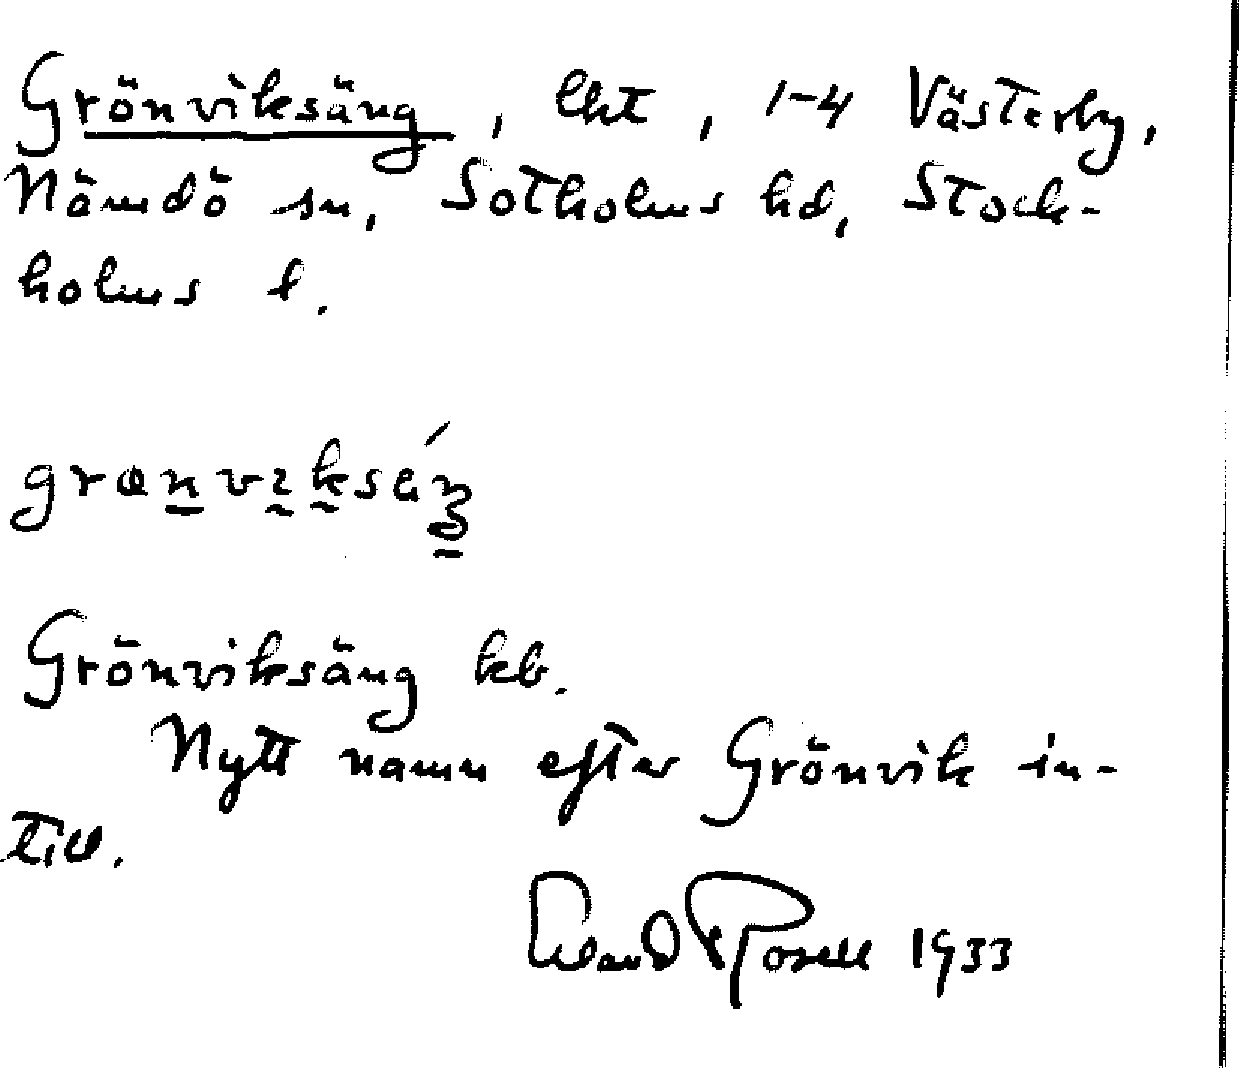 Grönviksäng, lht, 1-4 Västerby,
Nämdö sn, Sotholms hd, Stock-
holms l.
Grönviksäng kb.
Nytt namn efter Grönvik in-
till.
Rosell 1933